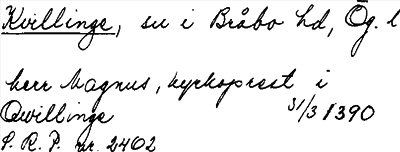 Kvillinge, sn i Bråbo hd, Ög. l
herr Magnus, kyrkoprest i
Qwillinge 31/3 1390
S. R. P. nr. 2402